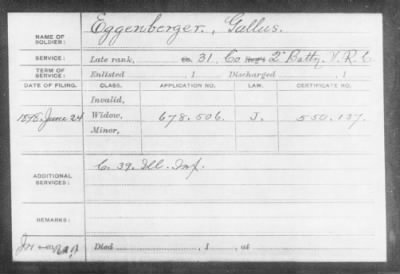 NAME OF SOLDIER: Eggenberger, Gallus.
SERVICE: Late rank, Co. 31, Co 2" Batty. V. R. C.
TERM OF SERVICE: Enlisted , 1 Discharged , 1
DATE OF FILING. CLASS. APPLICATION NO. LAW. CERTIFICATE NO.
Invalid,
1898. June 24 Widow, 678.506. J. 550.137.
Minor,
ADDITIONAL SERVICES: C. 39. Ill. Inf.
REMARKS:
Died , 1 , at